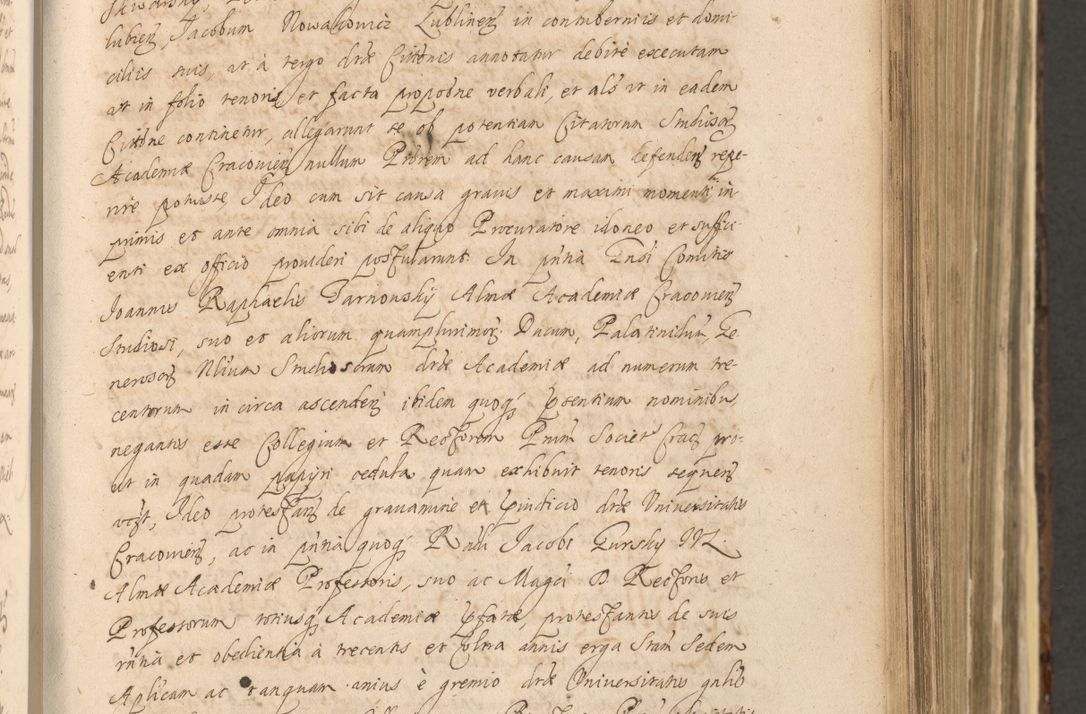 lubien, Jacobum Nowakowicz Lublinen in contuberniis et domi-
ciliis suis, ut à tergo dræ Cittonis annotatur debite executam
ut in folio tenoris et facta propoōne verbali, et als ut in eadem
Cittōne continetur, allegarunt se ob potentiam Citatorum Studiosor
Academiæ Cracovien nullum Prōrem ad hanc causam defenden repe-
rire potuisse Ideo cum sit causa gravis et maximi momenti in
primis et ante omnia sibi de aliquo Procuratore idoneo et suffici-
enti ex officio provideri postularunt. In pntia Gnsi Comitis
Joannis Raphaelis Tarnowsky Almæ Academiæ Cracovien
Studiosi, suo et aliorum quamplurimor Ducum, Palatinidum, Ge-
nerosor Nlium Studiosorum dræ Academiæ ad numerum tre-
centorum in circa ascenden ibidem quoq pntium nominibus
negantis esse Collegium et Rectorem Pnum Societ Crac pro-
ut in quadam papyri cedula quam exhibuit tenoris sequen
Ideo protestan de gravamine et dræ Universitatis
Cracovien, ac in pntia quoq Rndi Jacobi Gursky
Almæ Academiæ Professoris, suo ac Magci D. Rectoris et
Professorum totiusq Academiæ pfatæ, protestantis de suis
rntia et obedientia à trecentis et ultra annis erga Stam Sedem
Aplicam ac tanquam unius è gremio dræ Universitatis gnlis